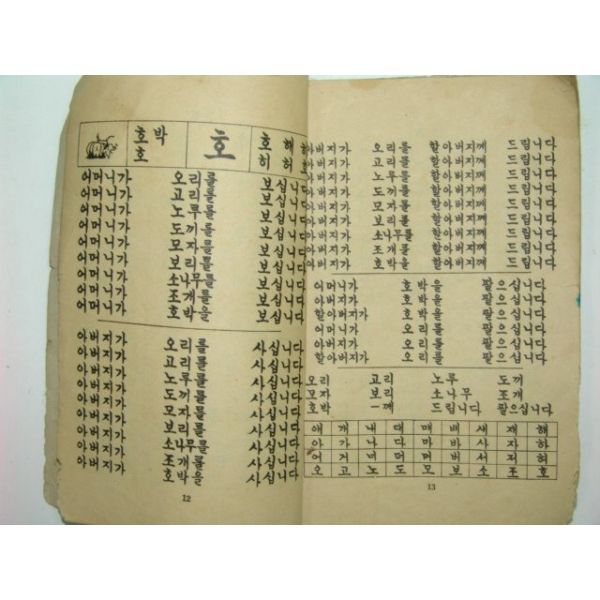 호박 호 해 하
호 호 히 허 호
어머니가 오리를 보십니다
어머니가 고리를 보십니다
어머니가 노루를 보십니다
어머니가 도끼를 보십니다
어머니가 모자를 보십니다
어머니가 보리를 보십니다
어머니가 소나무를 보십니다
어머니가 조개를 보십니다
어머니가 호박을 보십니다
아버지가 오리를 사십니다
아버지가 고리를 사십니다
아버지가 노루를 사십니다
아버지가 도끼를 사십니다
아버지가 모자를 사십니다
아버지가 보리를 사십니다
아버지가 소나무를 사십니다
아버지가 조개를 사십니다
아버지가 호박을 사십니다
12
아버지가 오리를 할아버지께 드립니다
아버지가 고리를 할아버지께 드립니다
아버지가 노루를 할아버지께 드립니다
아버지가 도끼를 할아버지께 드립니다
아버지가 모자를 할아버지께 드립니다
아버지가 보리를 할아버지께 드립니다
아버지가 소나무를 할아버지께 드립니다
아버지가 조개를 할아버지께 드립니다
아버지가 호박을 할아버지께 드립니다
어머니가 호박을 팔으십니다
아버지가 호박을 팔으십니다
할아버지가 호박을 팔으십니다
어머니가 오리를 팔으십니다
아버지가 오리를 팔으십니다
할아버지가 오리를 팔으십니다
오리 고리 노루 도끼
모자 보리 소나무 조개
호박 ―께 드립니다 팔으십니다
애 개 내 대 매 배 새 재 해
아 가 나 다 마 바 사 자 하
어 거 너 더 머 버 서 저 허
오 고 노 도 모 보 소 조 호
13